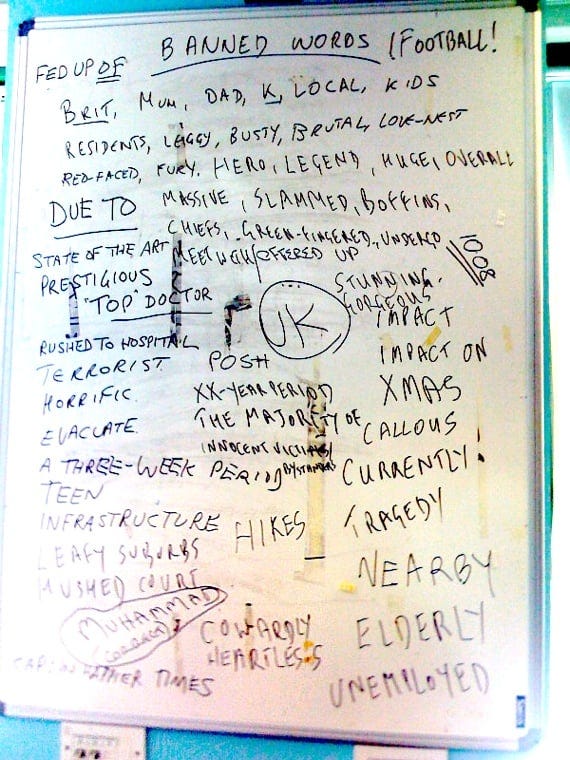 BANNED WORDS (FOOTBALL!
FED UP OF
BRIT, MUM, DAD, K, LOCAL, KIDS
RESIDENTS, LEGGY, BUSTY, BRUTAL, LOVE-NEST
RED-FACED, FURY, HERO, LEGEND, HUGE, OVERALL
DUE TO MASSIVE, SLAMMED, BOFFINS,
CHIEFS, GREEN-FINGERED, UNDERGO
STATE OF THE ART MEET WITH/OFFERED UP
10.08
PRESTIGIOUS STUNNING.
"TOP" DOCTOR GORGEOUS
UK IMPACT
RUSHED TO HOSPITAL
TERRORIST POSH IMPACT ON
HORRIFIC. XX-YEAR PERIOD XMAS
EVACUATE THE MAJORITY OF CALLOUS
INNOCENT VICTIMS/
BYSTANDERS
A THREE-WEEK PERIOD CURRENTLY!
TEEN
INFRASTRUCTURE HIKES TRAGEDY
LEAFY SUBURBS
HUSHED COURT NEARBY
MUHAMMAD
COWARDLY ELDERLY
HEARTLESS
TIMES UNEMPLOYED